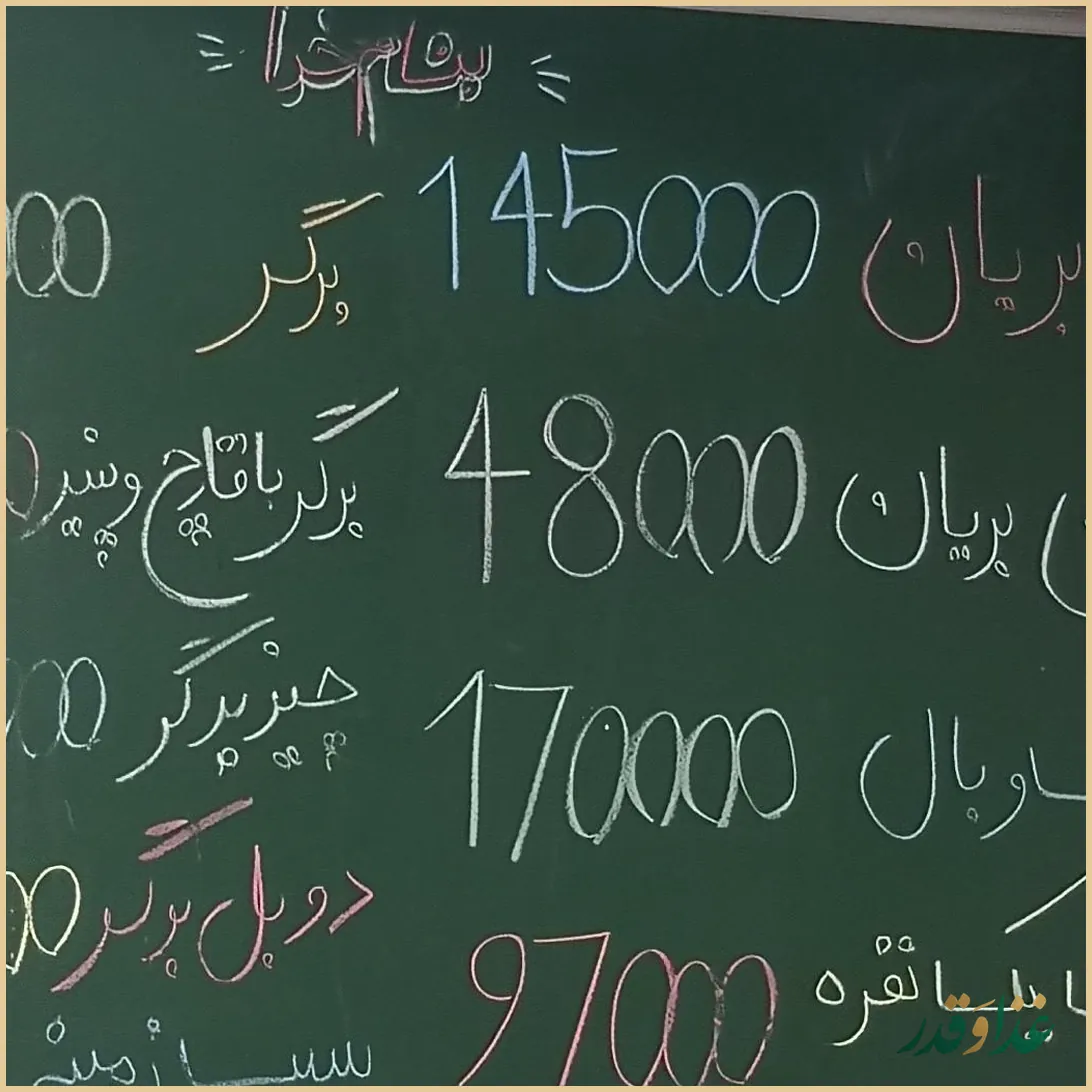 بنام خدا
بریان 145000 برگر 000
بریان 48000 برگر با قارچ و پنیر
وبال 170000 چیز برگر 000
نقره 97000 دوبل برگر 00
غذا و قدر